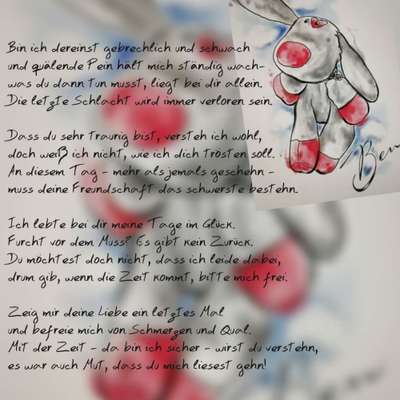 Bin ich dereinst gebrechlich und schwach
und quälende Pein hält mich ständig wach-
was du dann tun musst, liegt bei dir allein.
Die letzte Schlacht wird immer verloren sein.
Dass du sehr traurig bist, versteh ich wohl,
doch weiß ich nicht, wie ich dich trösten soll.
An diesem Tag - mehr als jemals geschehn -
muss deine Freundschaft das schwerste bestehn.
Ich lebte bei dir meine Tage im Glück.
Furcht vor dem Muss? Es gibt kein Zurück.
Du möchtest doch nicht, dass ich leide dabei,
drum gib, wenn die Zeit kommt, bitte mich frei.
Zeig mir deine Liebe ein letztes Mal
und befreie mich von Schmerzen und Qual.
Mit der Zeit - da bin ich sicher - wirst du verstehn,
es war auch Mut, dass du mich liesest gehn!
Ben